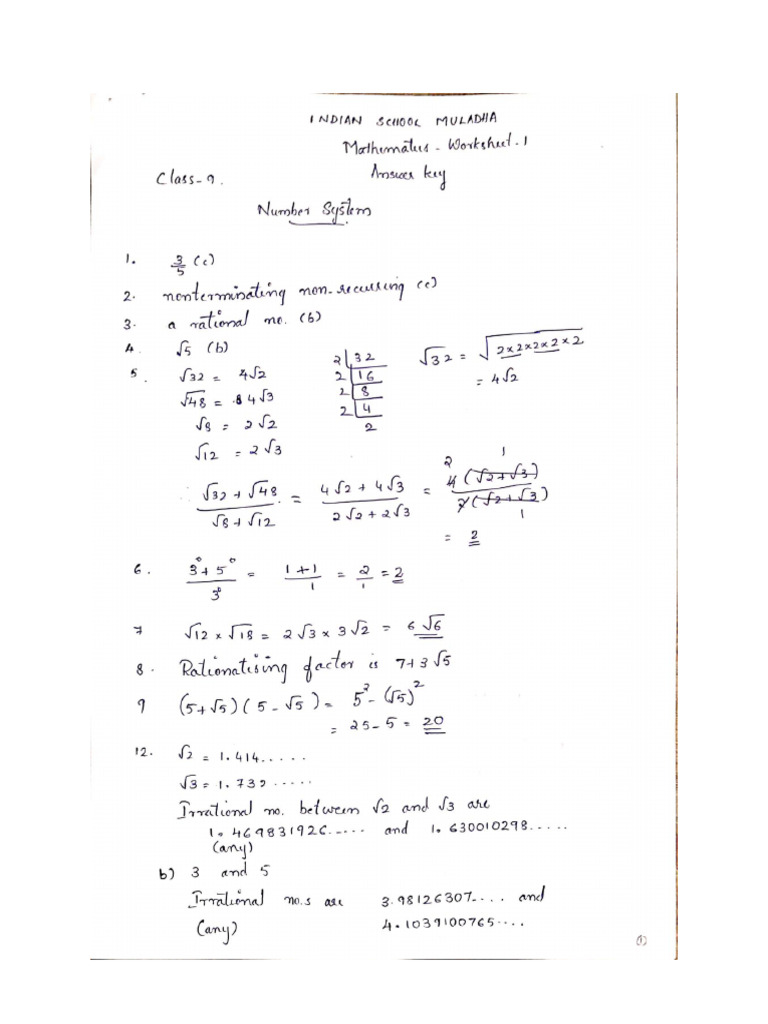 INDIAN SCHOOL MULADHA
Mathematics - Worksheet. 1
Class - 9. Answer key
Number System
1. 3/5 (c)
2. nonterminating non-recurring (c)
3. a rational no. (b)
4. √5 (b)
5. √32 = 4√2
√48 = 8 4√3
√8 = 2√2
√12 = 2√3
2 | 32
2 | 16
2 | 8
2 | 4
2
√32 = √2×2×2×2×2
= 4√2
∴ (√32 + √48)/(√8 + √12) = (4√2 + 4√3)/(2√2 + 2√3) = 4(√2+√3)/2(√2+√3) 2 1 1
= 2
6. (3⁰ + 5⁰)/3⁰ = (1+1)/1 = 2/1 = 2
7 √12 × √18 = 2√3 × 3√2 = 6√6
8. Rationatising factor is 7+3√5
9 (5+√5)(5-√5) = 5² - (√5)²
= 25 - 5 = 20
12. √2 = 1.414.....
√3 = 1.732.....
Irrational no. between √2 and √3 are
1.469831926..... and 1.630010298.....
(any)
b) 3 and 5
Irrational no.s are 3.98126307.... and
(any) 4.1039100765....
①